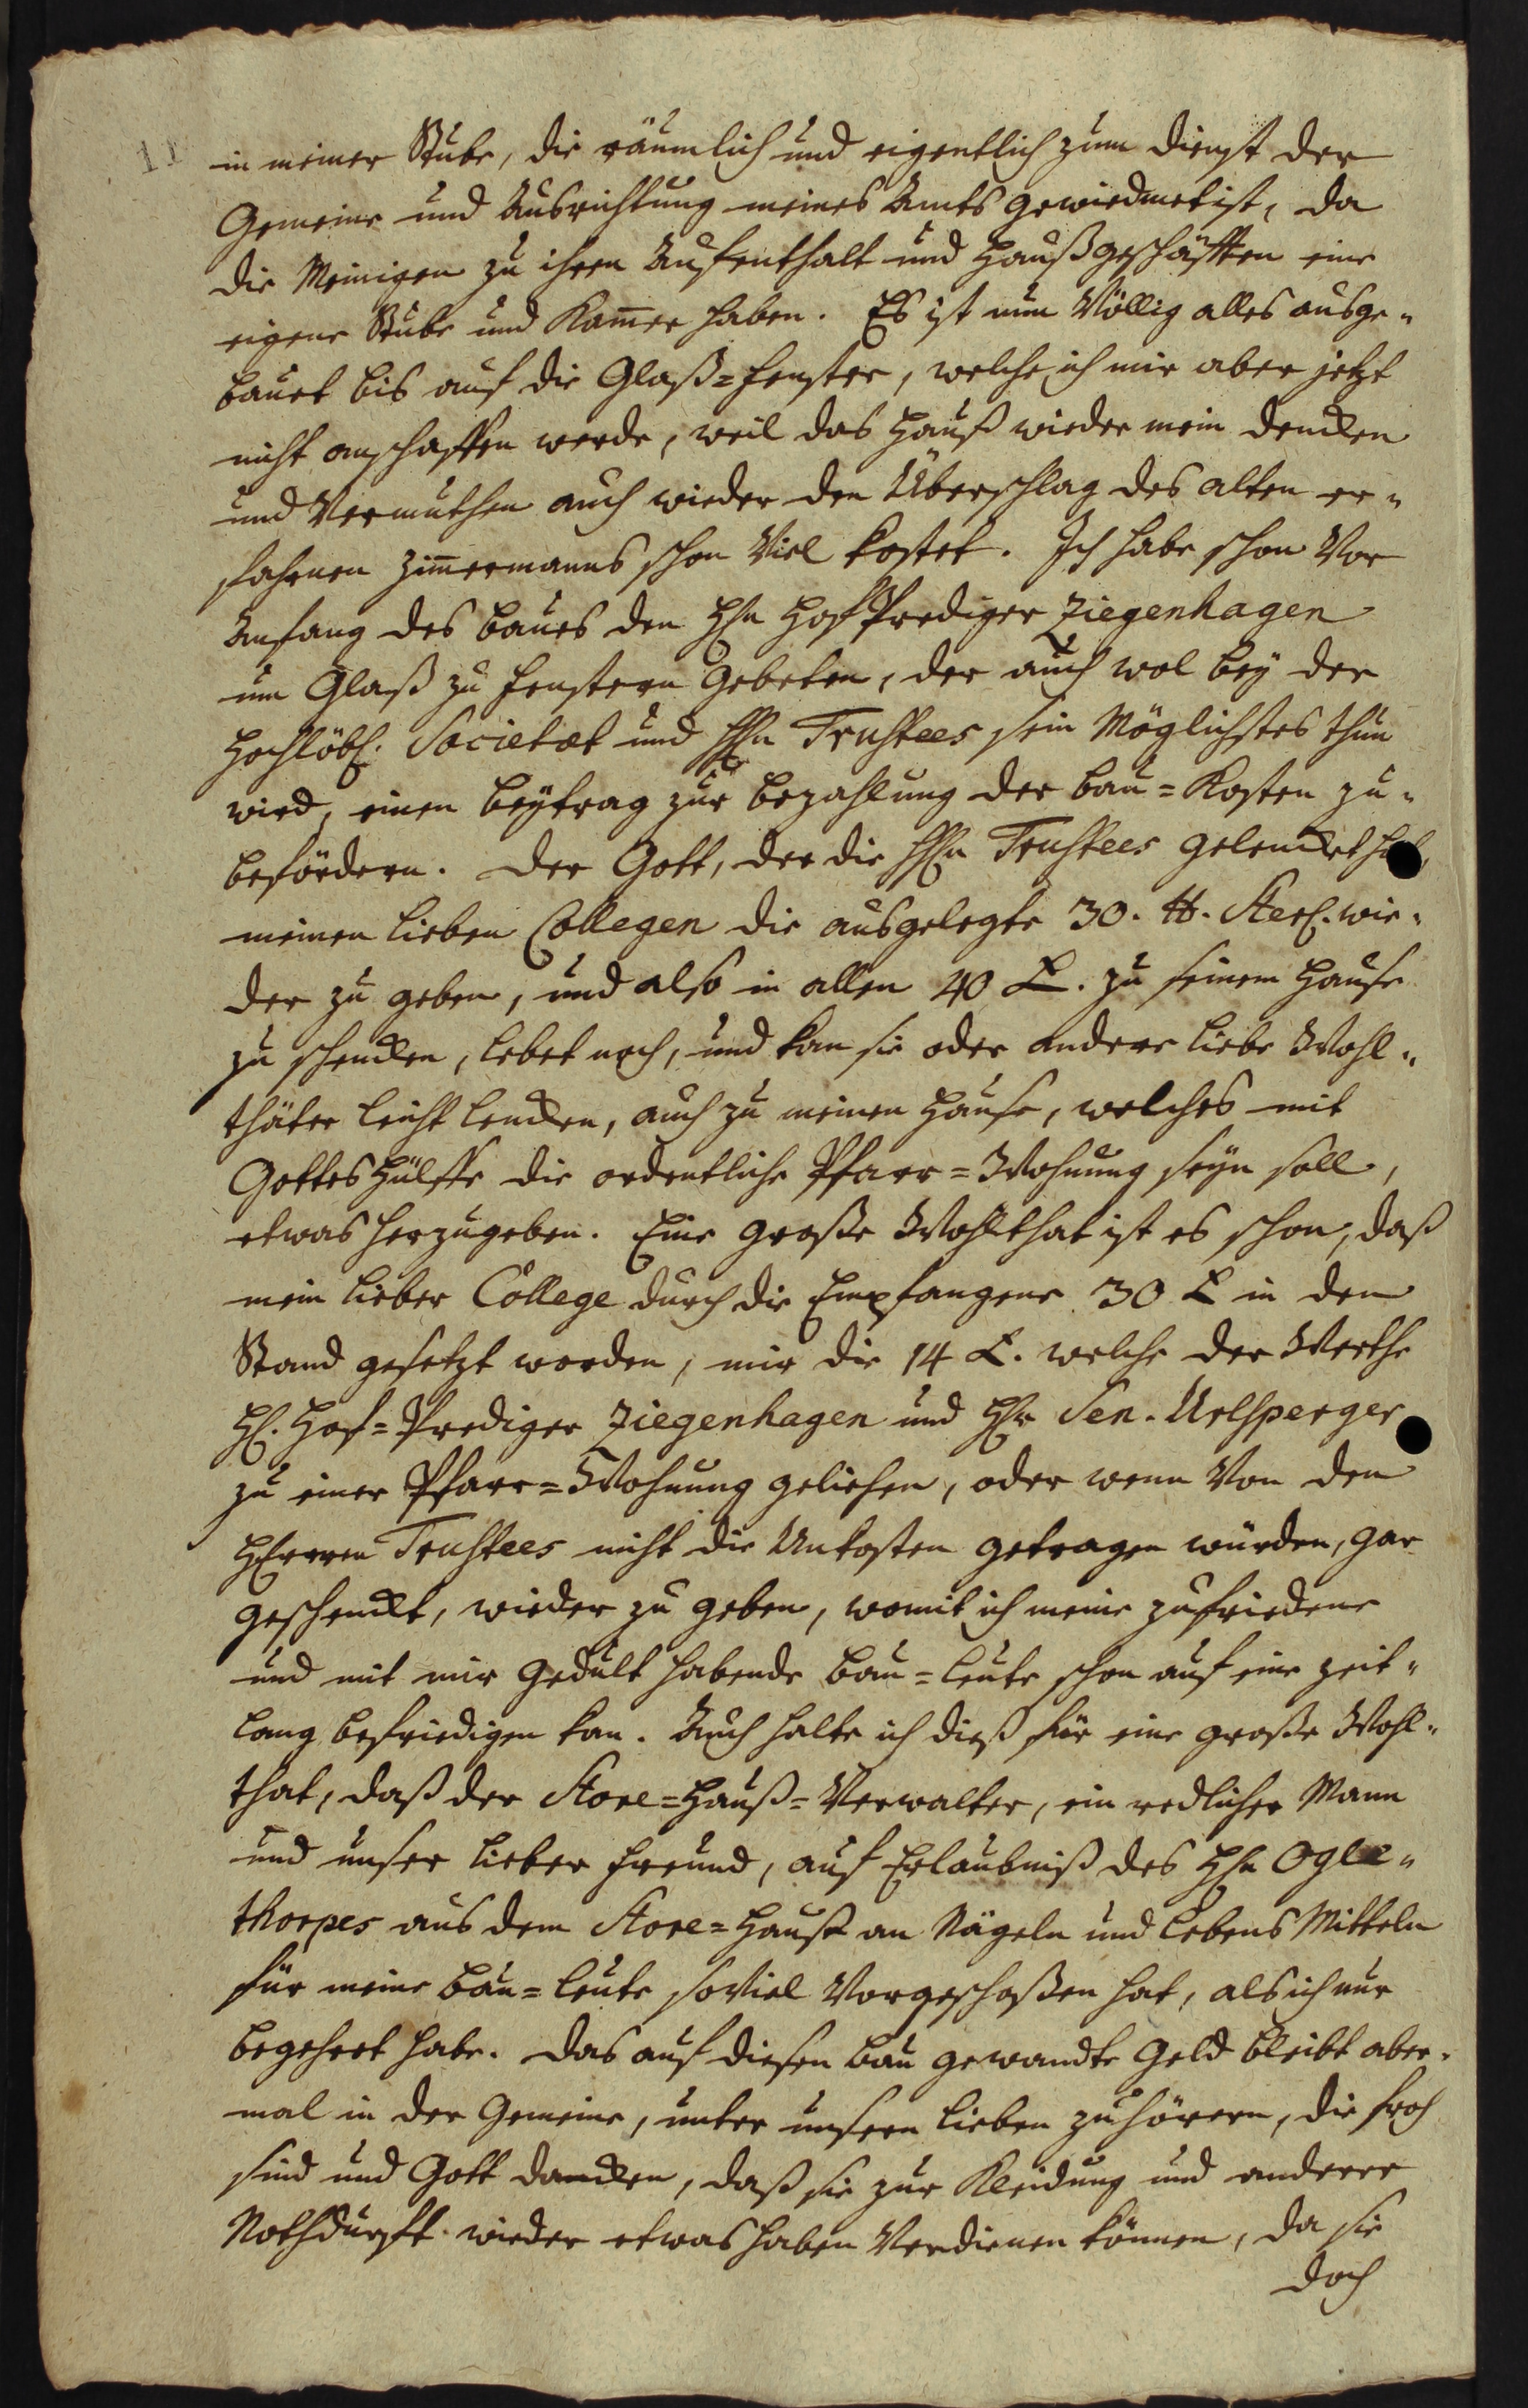 in meiner Stube, die räumlich und eigentlich zum Dienst der
Gemeine und Ausrichtung meines Amts gewiedmet ist, da
die Meinigen zu ihren Aufenthalt und Haußgeschäfften eine
eigene Stube und Kam̅er haben. Es ist nun Völlig alles ausge„
bauet bis auf die Glaß=fenster, welche ich mir aber jetzt
nicht anschaffen werde, weil das Hauß wieder mein dencken
und Vermuthen auch wieder den Überschlag des alten er„
fahrnen Zim̅ermanns schon Viel kostet. Ich habe schon Vor
Anfang des baues den Hℏn HofPrediger Ziegenhagen
um Glaß zu fenstern gebeten, der auch wol bey der
Hochlöbl. Societæt und HHn Trustees sein Möglichstes thun
wird, einen beytrag zur bezahlung der bau=Kosten zu„
befördern. Der Gott, der die HHn Trustees gelencket hat,
meinen lieben Collegen die ausgelegte 30. ℔. Sterl. wie„
der zu geben, und also in allen 40 £. zu seinem Hause
zu schencken, lebet noch, und kan sie oder andere liebe Wohl„
thäter leicht lencken, auch zu meinen Hause, welches mit
Gottes Hülffe die ordentliche Pfarr=Wohnung seyn soll,
etwas herzugeben. Eine große Wohlthat ist es schon, daß
mein lieber College durch die Empfangene 30 £ in den
Stand gesetzt worden, mir die 14 £. welche der Werthe
H. Hof=Prediger Ziegenhagen und Hr Sen. Urlsperger
zu einer Pfarr=Wohnung geliehen, oder wenn Von den
HErren Trustees nicht die Unkosten getragen würden, gar
geschenckt, wieder zu geben, womit ich meine zufriedene
und mit mir Gedult habende bau=leute schon auf eine zeit„
lang befriedigen kan. Auch halte ich dieß für eine große Wohl„
that, daß der Store=Hauß=Verwalter, ein redlicher Mann
und unser lieber freund, auf Erlaubniß des Hℏn Ogle„
thorpes aus dem Store=Hauße an Nägeln und Lebens Mitteln
für meine bau=leute soviel Vorgeschoßen hat, als ich nur
begehrt habe. Das auf diesen bau gewandte Geld bleibt aber„
mal in der Gemeine, unter unsern lieben zuhörern, die froh
sind und Gott dancken, daß sie zur Kleidung und anderer
Nothdurfft wieder etwas haben Verdienen können, da sie
doch